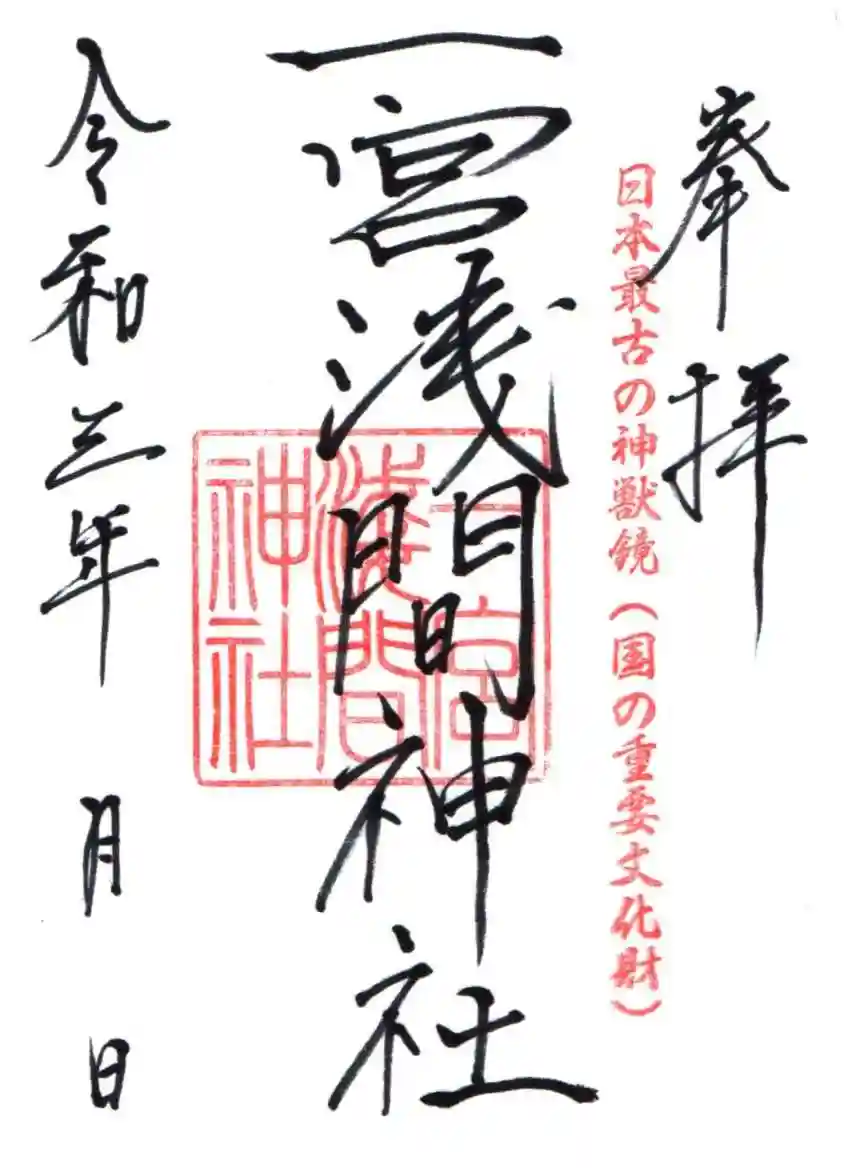 奉拝
日本最古の神獣鏡(国の重要文化財)
一宮浅間神社
一宮
浅間
神社
令和三年 月 日